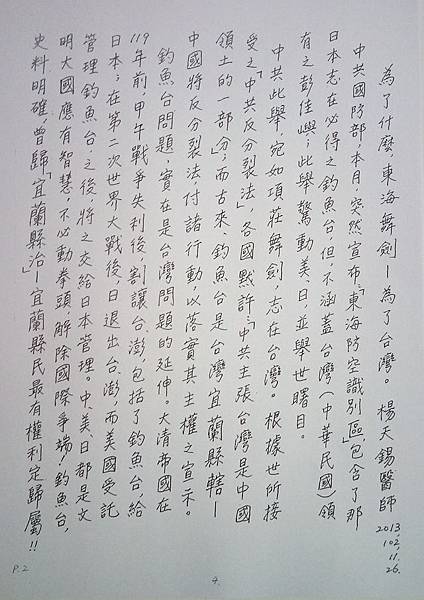 為了什麼，東海舞劍－為了台灣。 楊天錫醫師 2013, 102, 11, 26.
中共國防部，本月，突然宣布，「東海防空識別區」，包含了那
日本志在必得之釣魚台但不涵蓋台灣(中華民國)領
有之彭佳嶼；此舉驚動美、日，並舉世矚目。
中共此舉，宛如項莊舞劍，志在台灣。根據世所接
受之「中共反分裂法」，各國默許：「中共主張台灣是中國
領土的一部分」；而古來，釣魚台是台灣宜蘭縣轄－
中國將反分裂法，付諸行動，以落實其主權之宣示。
釣魚台問題，實在是台灣問題的延伸。大清帝國在
119年前，甲午戰爭失利後，割讓台、澎，包括了釣魚台，給
日本；在第二次世界大戰後，日退出台、澎，而美國受託
管理釣魚台，之後，將之交給日本管理。中、美、日都是文
明大國應有智慧，不必動拳頭，解除國際爭端，釣魚台，
史料明確，曾歸「宜蘭縣治」－宜蘭縣民最有權利定歸屬!!
P.2
4.